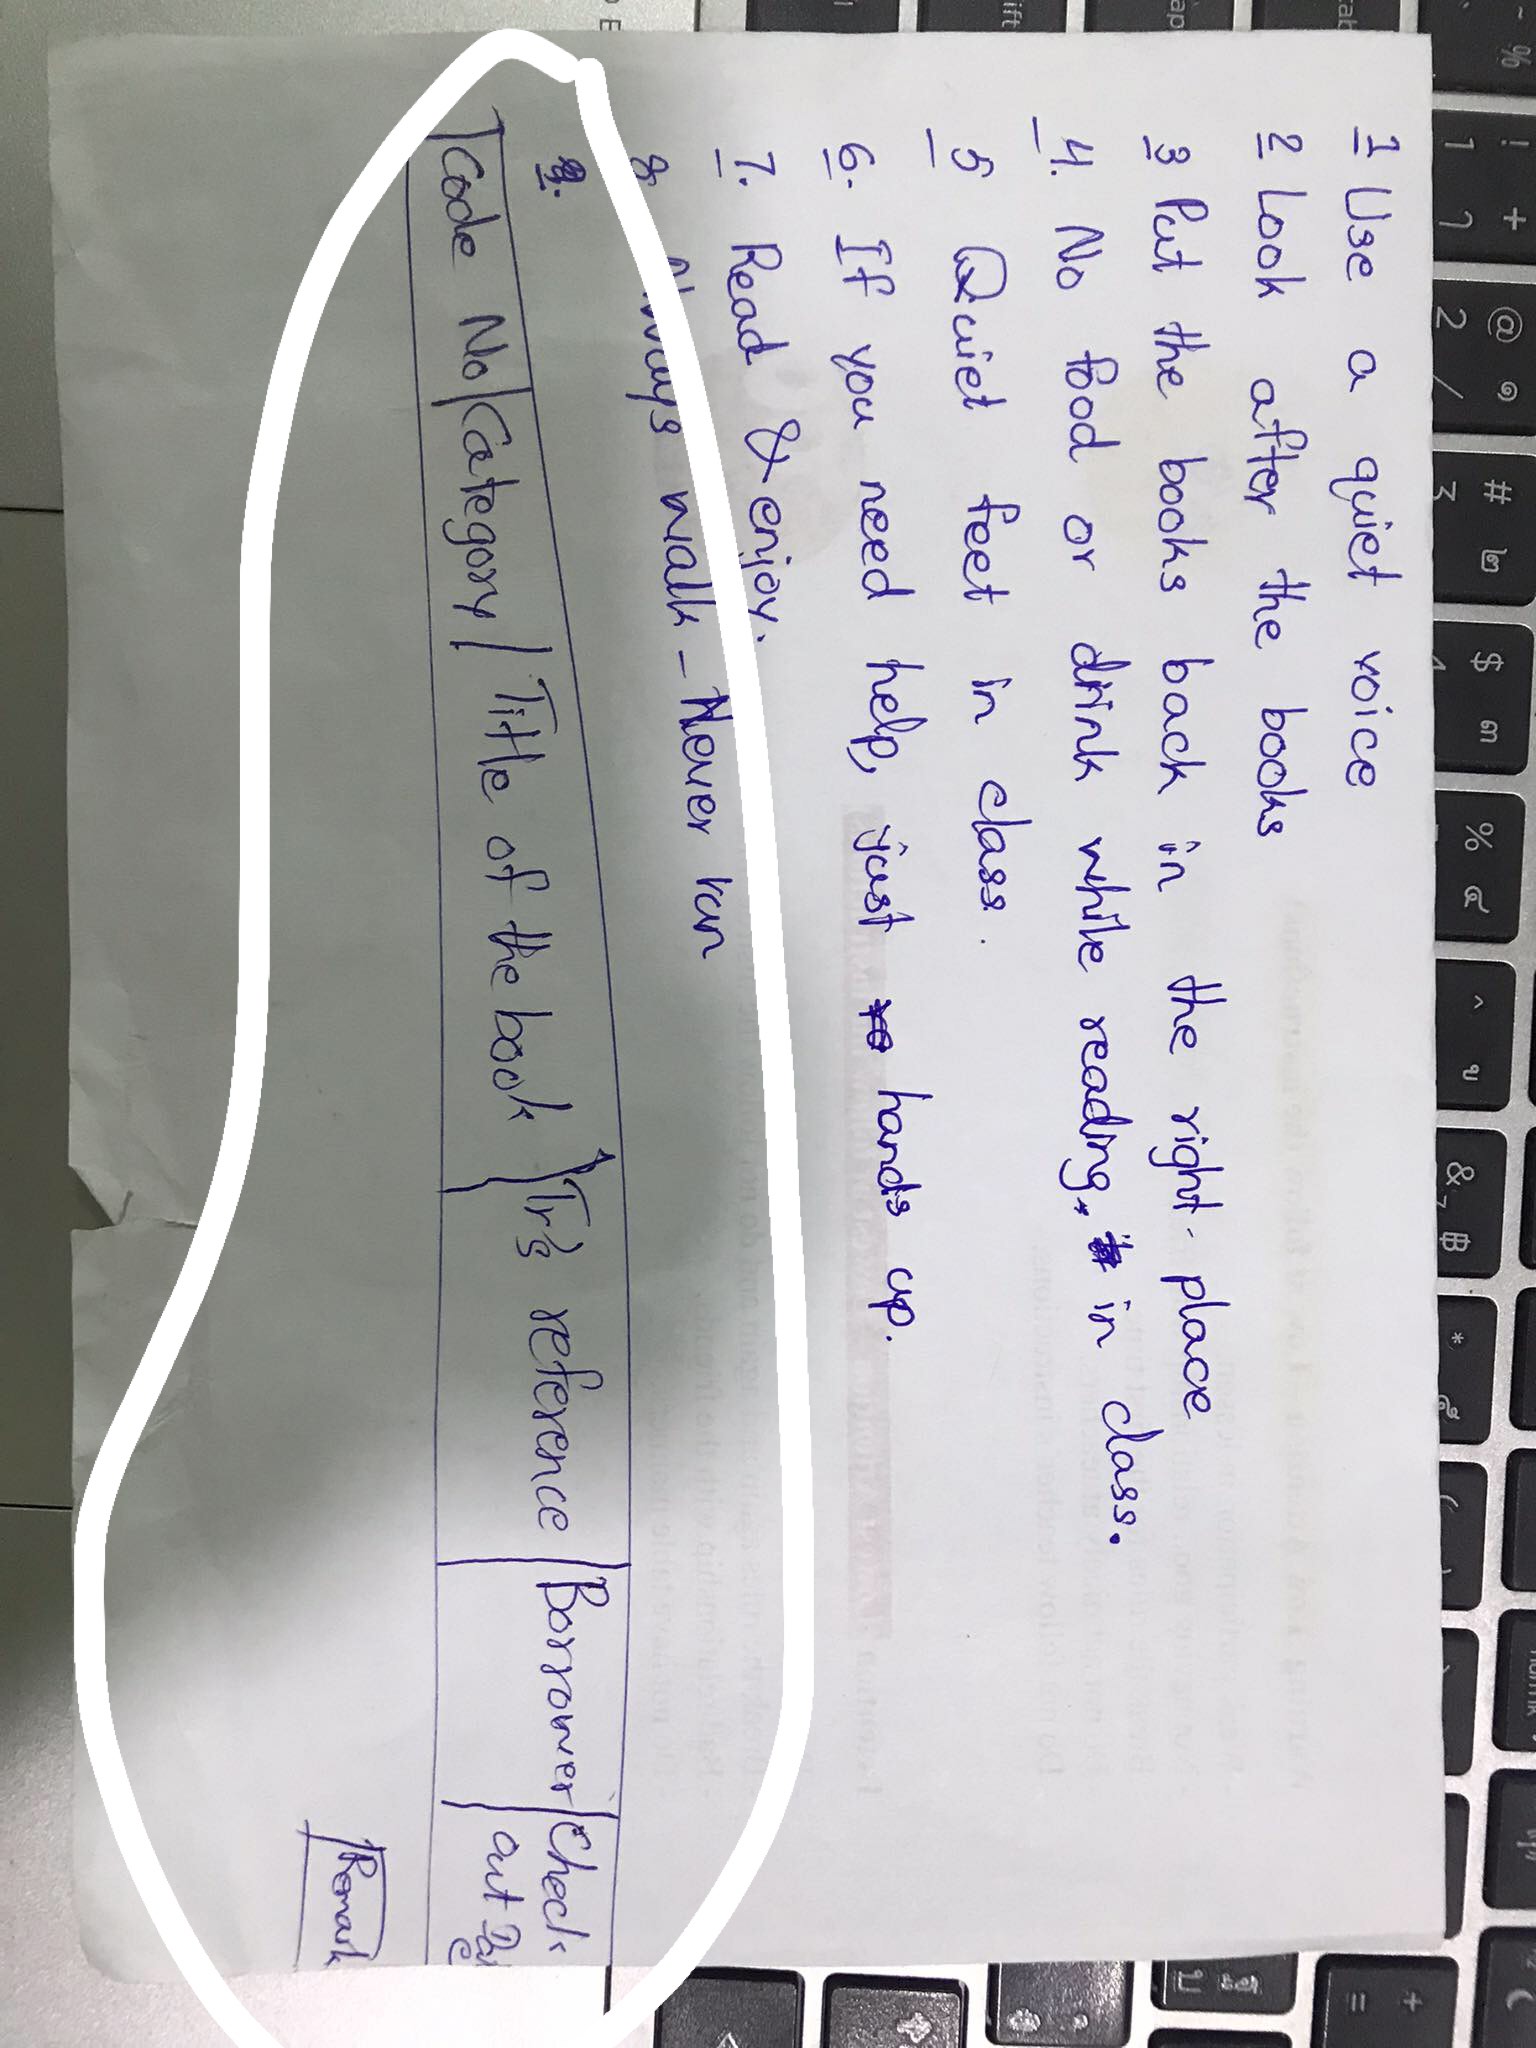 1 Use a quiet voice
2 Look after the books
3 Put the books back in the right place
4. No food or drink while reading, in class.
5 Quiet feet in class.
6. If you need help, just hands up.
7. Read & enjoy.
8. Always walk - Never run
Code No | Category | Title of the book | Tr's reference | Borrower | Check out
Remark